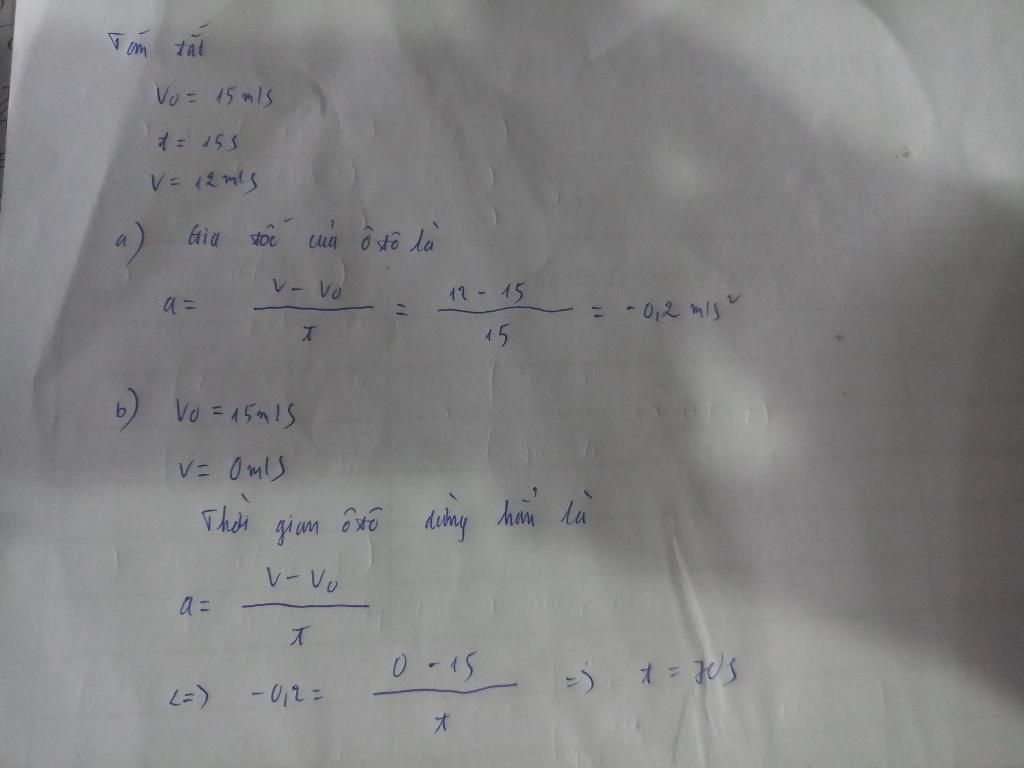 Tóm tắt
V0 = 15 m/s
t = 15s
V = 12 m/s
a) Gia tốc của ô tô là
a = (V - V0) / t = (12 - 15) / 15 = -0,2 m/s²
b) V0 = 15 m/s
V = 0 m/s
Thời gian ô tô dừng hẳn là
a = (V - V0) / t
<=> -0,2 = (0 - 15) / t => t =